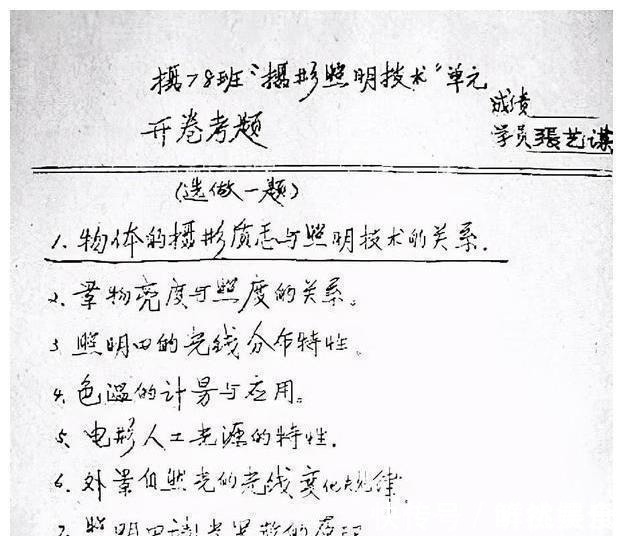 摄78班“摄影照明技术”单元
成绩
开卷考题
学员張艺谋
(选做一题)
1. 物体的摄影质志与照明技术的关系.
2. 景物亮度与照度的关系。
3 照明田的光线分布特性。
4. 色温的计算与应用。
5. 电影人工光源的特性.
6. 外景自然光的光线变化规律
7. 照明田